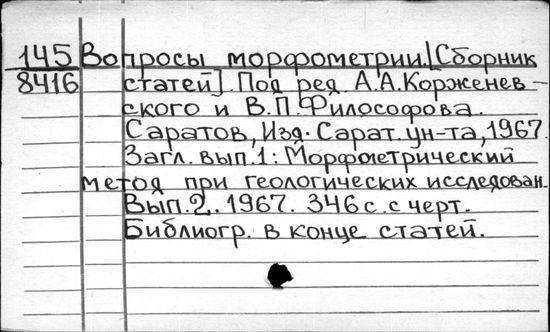 145 Вопросы морфометрии.[Сборник
8416 статей]. Под ред. А.А.Корженев-
ского и В.П.Философова.
Саратов, Изд. Сарат. ун-та, 1967.
Загл. вып.1: Морфометрический
метод при геологических исследован.
Вып.2. 1967. 346 с. с черт.
Библиогр. в конце статей.